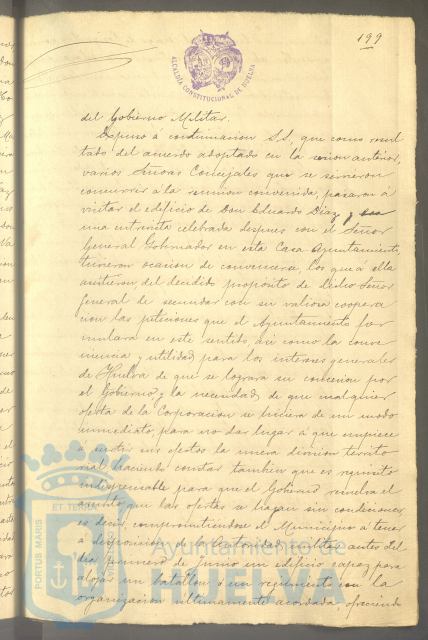 199
ALCALDÍA CONSTITUCIONAL DE HUELVA
del Gobierno Militar.
Expuso á continuacion S.S. que como resul
tado del acuerdo adoptado en la sesion anterior,
varios Señores Concejales que se sirvieron
concurrir á la reunion convenida, pasaron á
visitar el edificio de Don Eduardo Diaz y en
una entrevista celebrada despues con el Señor
General Gobernador en esta Casa Ayuntamiento,
tuvieron ocasion de convencerse, los que á ella
asistieron, del decidido propósito de dicho Señor
General de secundar con su valiosa coopera
cion las peticiones que el Ayuntamiento for
mulara en este sentido, asi como la conve
niencia y utilidad para los intereses generales
de Huelva de que se lograra su concesion por
el Gobierno, y la necesidad de que cualquier
oferta de la Corporacion se hiciera de un modo
inmediato, para no dar lugar á que empiece
á surtir sus efectos la nueva division territo
rial, haciendo constar tambien que es requisito
indispensable para que el Gobierno resuelva el
asunto que las ofertas se hagan sin condiciones
es decir, comprometiendose el Municipio á tener
á disposicion de la autoridad militar antes del
dia primero de Junio un edificio capaz para
alojar un batallon ó un regimiento con la
organizacion ultimamente acordada, ofreciendo
PORTUS MARIS
ET TERRÆ
Ayuntamiento de
HUELVA